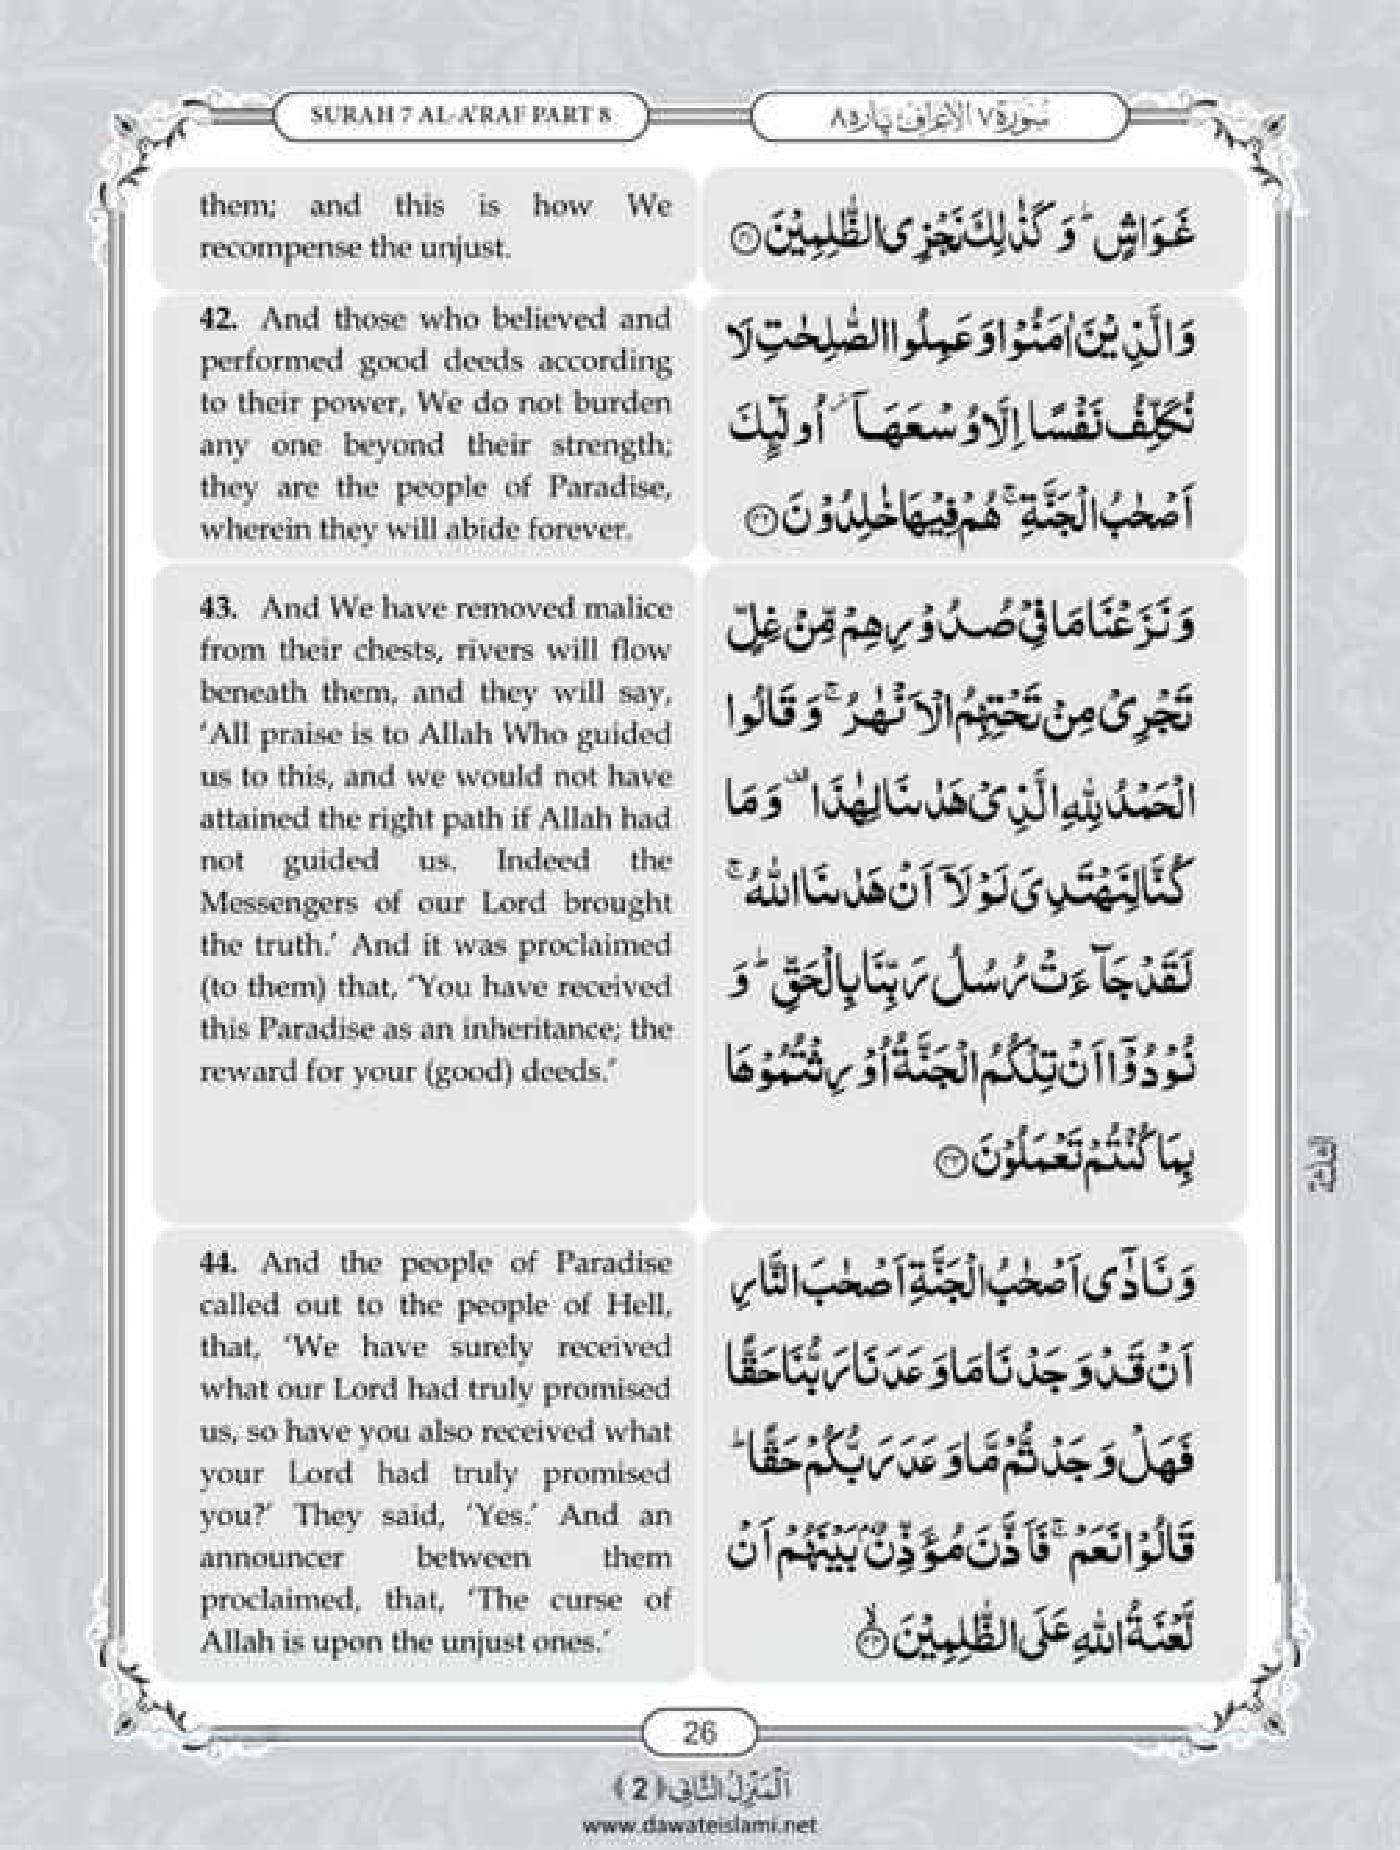 SURAH 7 AL-A'RAF PART 8
سُورَة ٧ الاَعْرَاف پارہ ٨
them; and this is how We
recompense the unjust.
غَوَاشٍ ؕ وَ كَذٰلِكَ نَجْزِی الظّٰلِمِیْنَ ﴿۴۱﴾
42. And those who believed and
performed good deeds according
to their power, We do not burden
any one beyond their strength;
they are the people of Paradise,
wherein they will abide forever.
وَ الَّذِیْنَ اٰمَنُوْا وَ عَمِلُوا الصّٰلِحٰتِ لَا
نُكَلِّفُ نَفْسًا اِلَّا وُسْعَهَاۤ ؗ اُولٰٓىِٕكَ
اَصْحٰبُ الْجَنَّةِ ۚ هُمْ فِیْهَا خٰلِدُوْنَ ﴿۴۲﴾
43. And We have removed malice
from their chests, rivers will flow
beneath them, and they will say,
‘All praise is to Allah Who guided
us to this, and we would not have
attained the right path if Allah had
not guided us. Indeed the
Messengers of our Lord brought
the truth.’ And it was proclaimed
(to them) that, ‘You have received
this Paradise as an inheritance; the
reward for your (good) deeds.’
وَ نَزَعْنَا مَا فِیْ صُدُوْرِهِمْ مِّنْ غِلٍّ
تَجْرِیْ مِنْ تَحْتِهِمُ الْاَنْهٰرُ ۚ وَ قَالُوا
الْحَمْدُ لِلّٰهِ الَّذِیْ هَدٰىنَا لِهٰذَا ۫ وَ مَا
كُنَّا لِنَهْتَدِیَ لَوْلَاۤ اَنْ هَدٰىنَا اللّٰهُ ۚ
لَقَدْ جَآءَتْ رُسُلُ رَبِّنَا بِالْحَقِّ ؕ وَ
نُوْدُوْۤا اَنْ تِلْكُمُ الْجَنَّةُ اُوْرِثْتُمُوْهَا
بِمَا كُنْتُمْ تَعْمَلُوْنَ ﴿۴۳﴾
44. And the people of Paradise
called out to the people of Hell,
that, ‘We have surely received
what our Lord had truly promised
us, so have you also received what
your Lord had truly promised
you?’ They said, ‘Yes.’ And an
announcer between them
proclaimed, that, ‘The curse of
Allah is upon the unjust ones.’
وَ نَادٰۤی اَصْحٰبُ الْجَنَّةِ اَصْحٰبَ النَّارِ
اَنْ قَدْ وَجَدْنَا مَا وَعَدَنَا رَبُّنَا حَقًّا
فَهَلْ وَجَدْتُّمْ مَّا وَعَدَ رَبُّكُمْ حَقًّا ؕ
قَالُوْا نَعَمْ ۚ فَاَذَّنَ مُؤَذِّنٌۢ بَیْنَهُمْ اَنْ
لَّعْنَةُ اللّٰهِ عَلَی الظّٰلِمِیْنَ ﴿ۙ۴۴﴾
26
اَلْمَنْزِلُ الثَّانِی ﴿2﴾
www.dawateislami.net